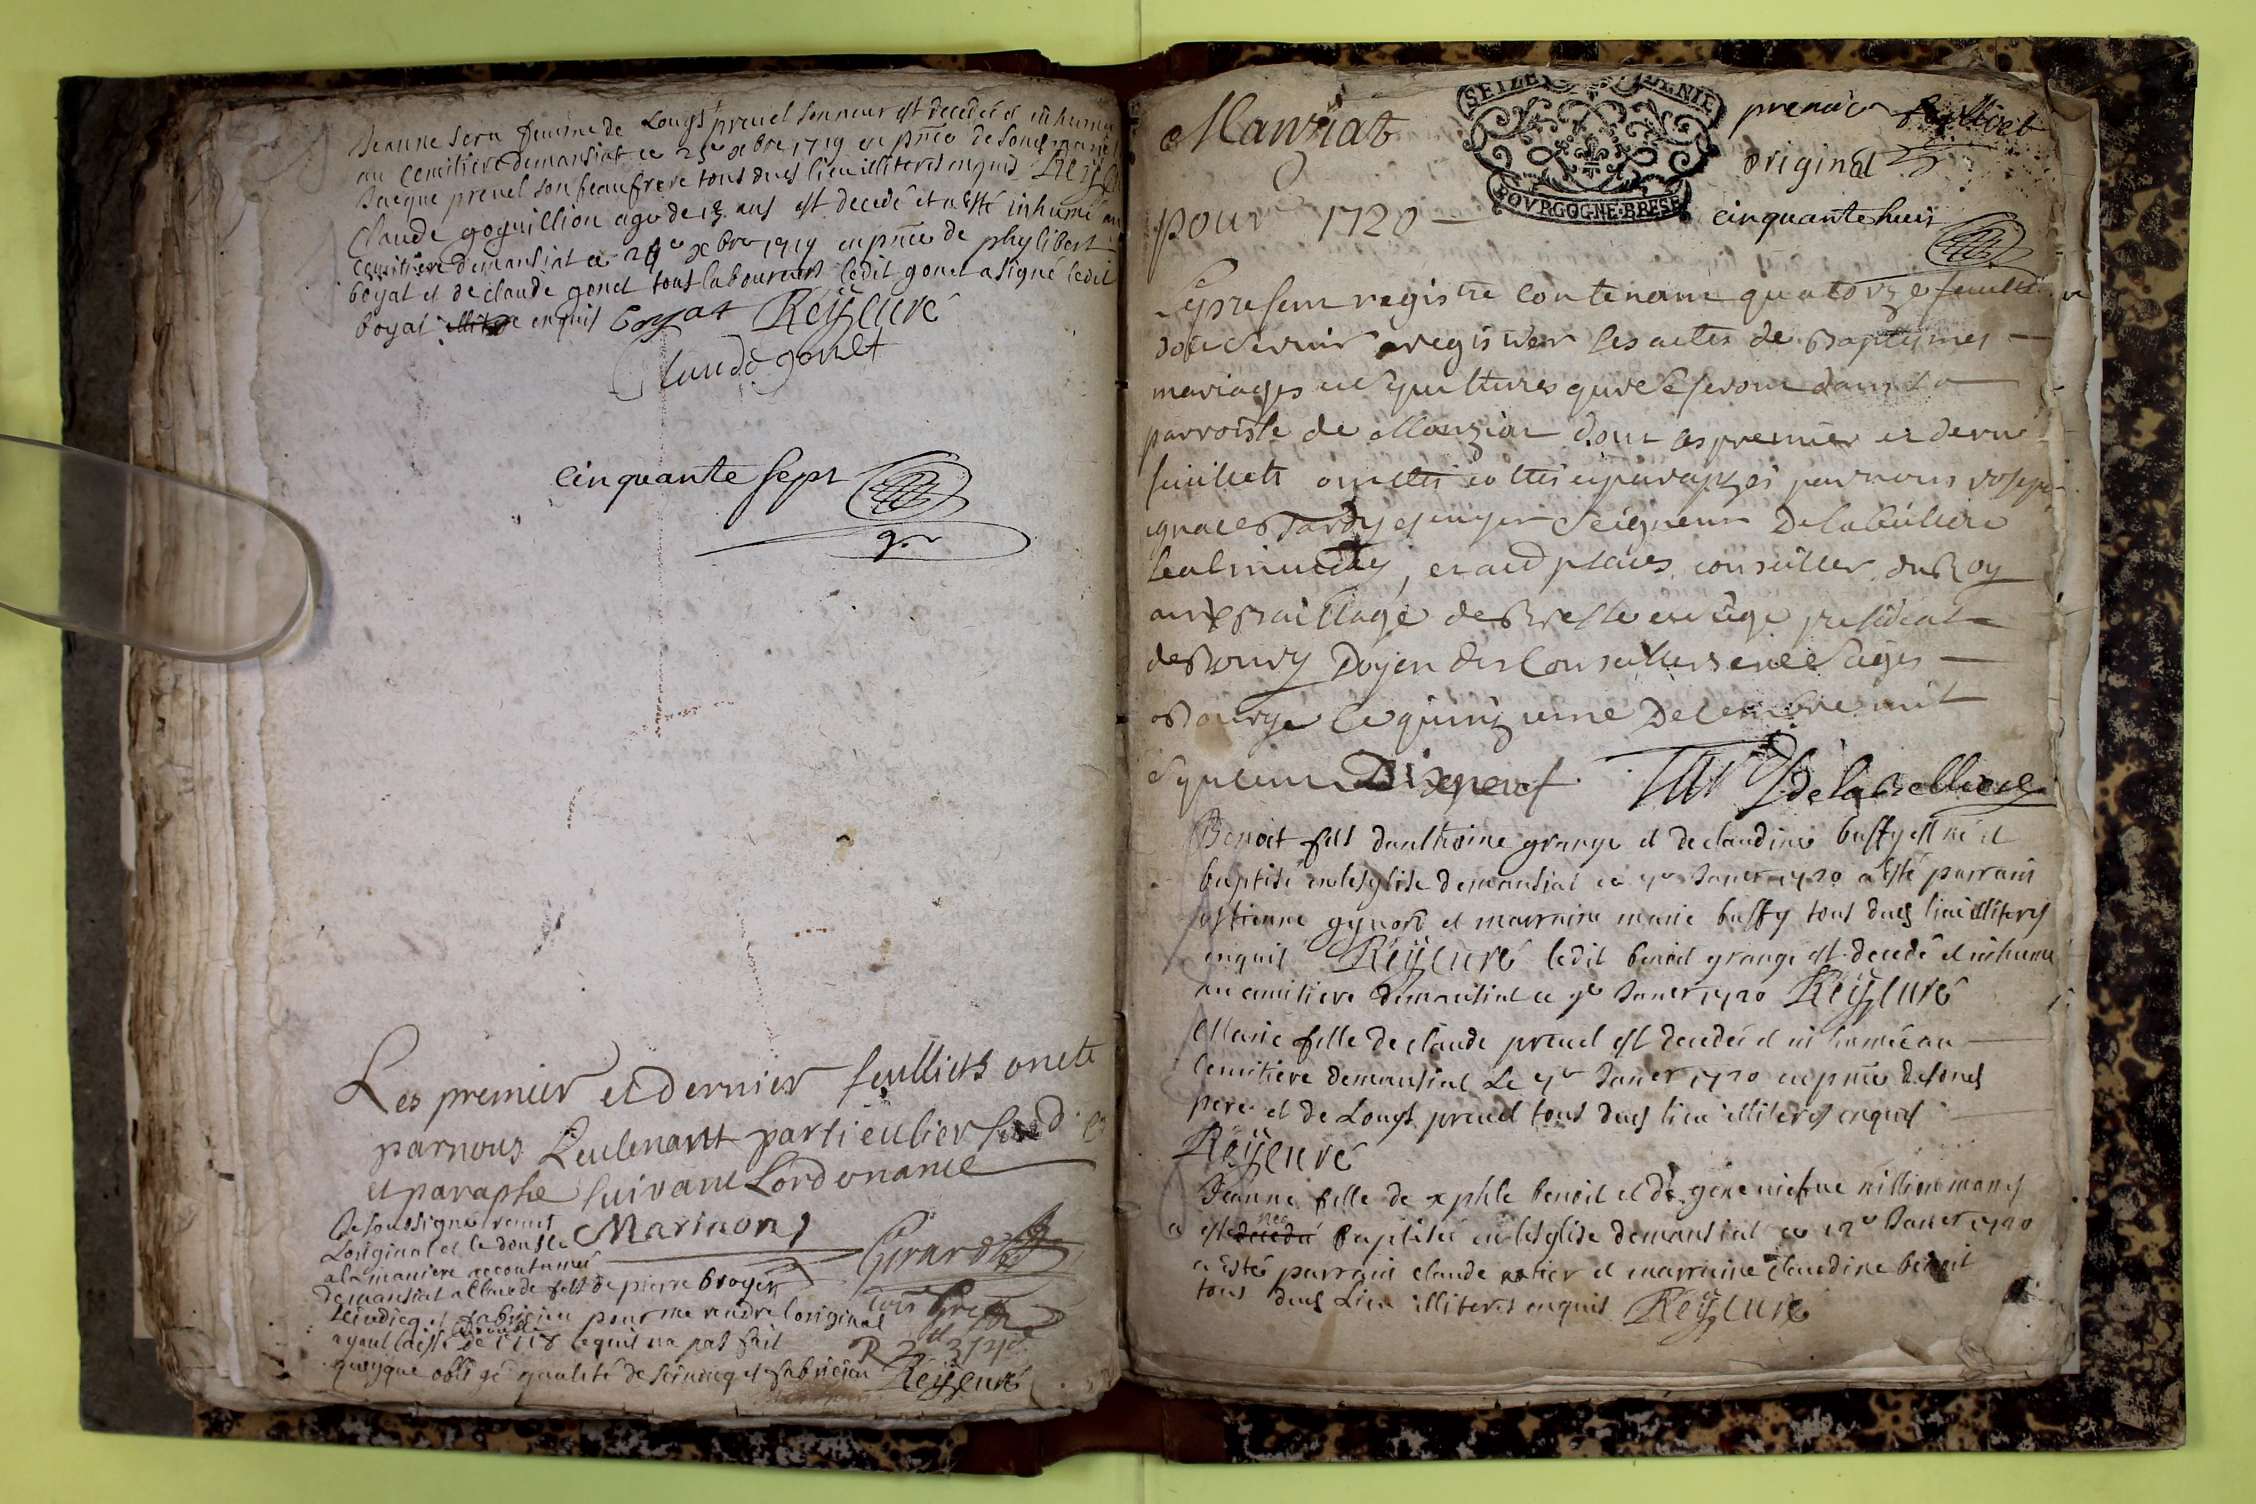 Jeanne sera femme de Louys prevel sonneur est decedée et inhumée
au cemitiere demansiat ce 23e xbre 1719 en pnce de sond mary et
Jacque prevel son beaufrere tous dud lieu illiteres enquis Reÿ curé
Claude goguillion agé de 13 ans est decedé et a esté inhumé au
cemitiere demansiat ce 24e xbre 1719 en pnce de phylibert
boyat et de claude gonet tous laboureurs ledit gonet a signé ledit
boyat enquis boyat Reÿ curé
Claude gonet
cinquante sept
Les premier et dernier feulliets onete
par nous Lieutenant particulier
et paraphe suivant Lordonance
Je soussigné remis
Loriginal et le double
a la maniere accoutumée
Marinon
Girard
demansiat a Claude fils de pierre broyer
scindicq et fabricien pour me rendre loriginal
ayant laissé le double de 1718 ce quil na pas fait
quoyque obligé qualité de scindicq et fabricien Reÿ curé
Manziat
SEIZE DENIE
BOVRGOGNE·BRESSE
premier feulliet
original
pour 1720
cinquante huit
Le present registre Contenant quatorze feuillets
doit servir a registrer les actes de Baptesmes
mariages et sepultures qui se feront dans la
parroisse de Manziat dont les premier et dernier
feuillets ont esté cottés et paraphés par nous Joseph
ignace Tardy escuyer Seigneur De la belliere
et autres places conseiller du Roy
au Bailliage de Bresse et siege presidial
de Bourg Doyen des Conseillers
a Bourg le quinzieme Decembre mil
sept cent Dixneuf Tardy De la Belliere
Benoit fils danthoine grange et de claudine buffy est né et
baptisé en lesglise demansiat ce 7e Janer 1720 a esté parrain
estienne gynod et marraine marie buffy tous dud lieu illiteres
enquis Reÿ curé ledit benoit grange est decedé et inhumé
au cemitiere demansiat ce 9e Janer 1720 Reÿ curé
Marie fille de claude prevel est decedée et inhumée au
Cemitiere demansiat Le 9e Janer 1720 en pnce de sond
pere et de Louys prevel tous dud lieu illiteres enquis
Reÿ curé
Jeanne fille de xphle benoit et de geneviefve million mariés
est decedé née baptisée en lesglise demansiat ce 12e Janer 1720
a esté parrain claude et marraine claudine benoit
tous dud Lieu illiteres enquis Reÿ curé